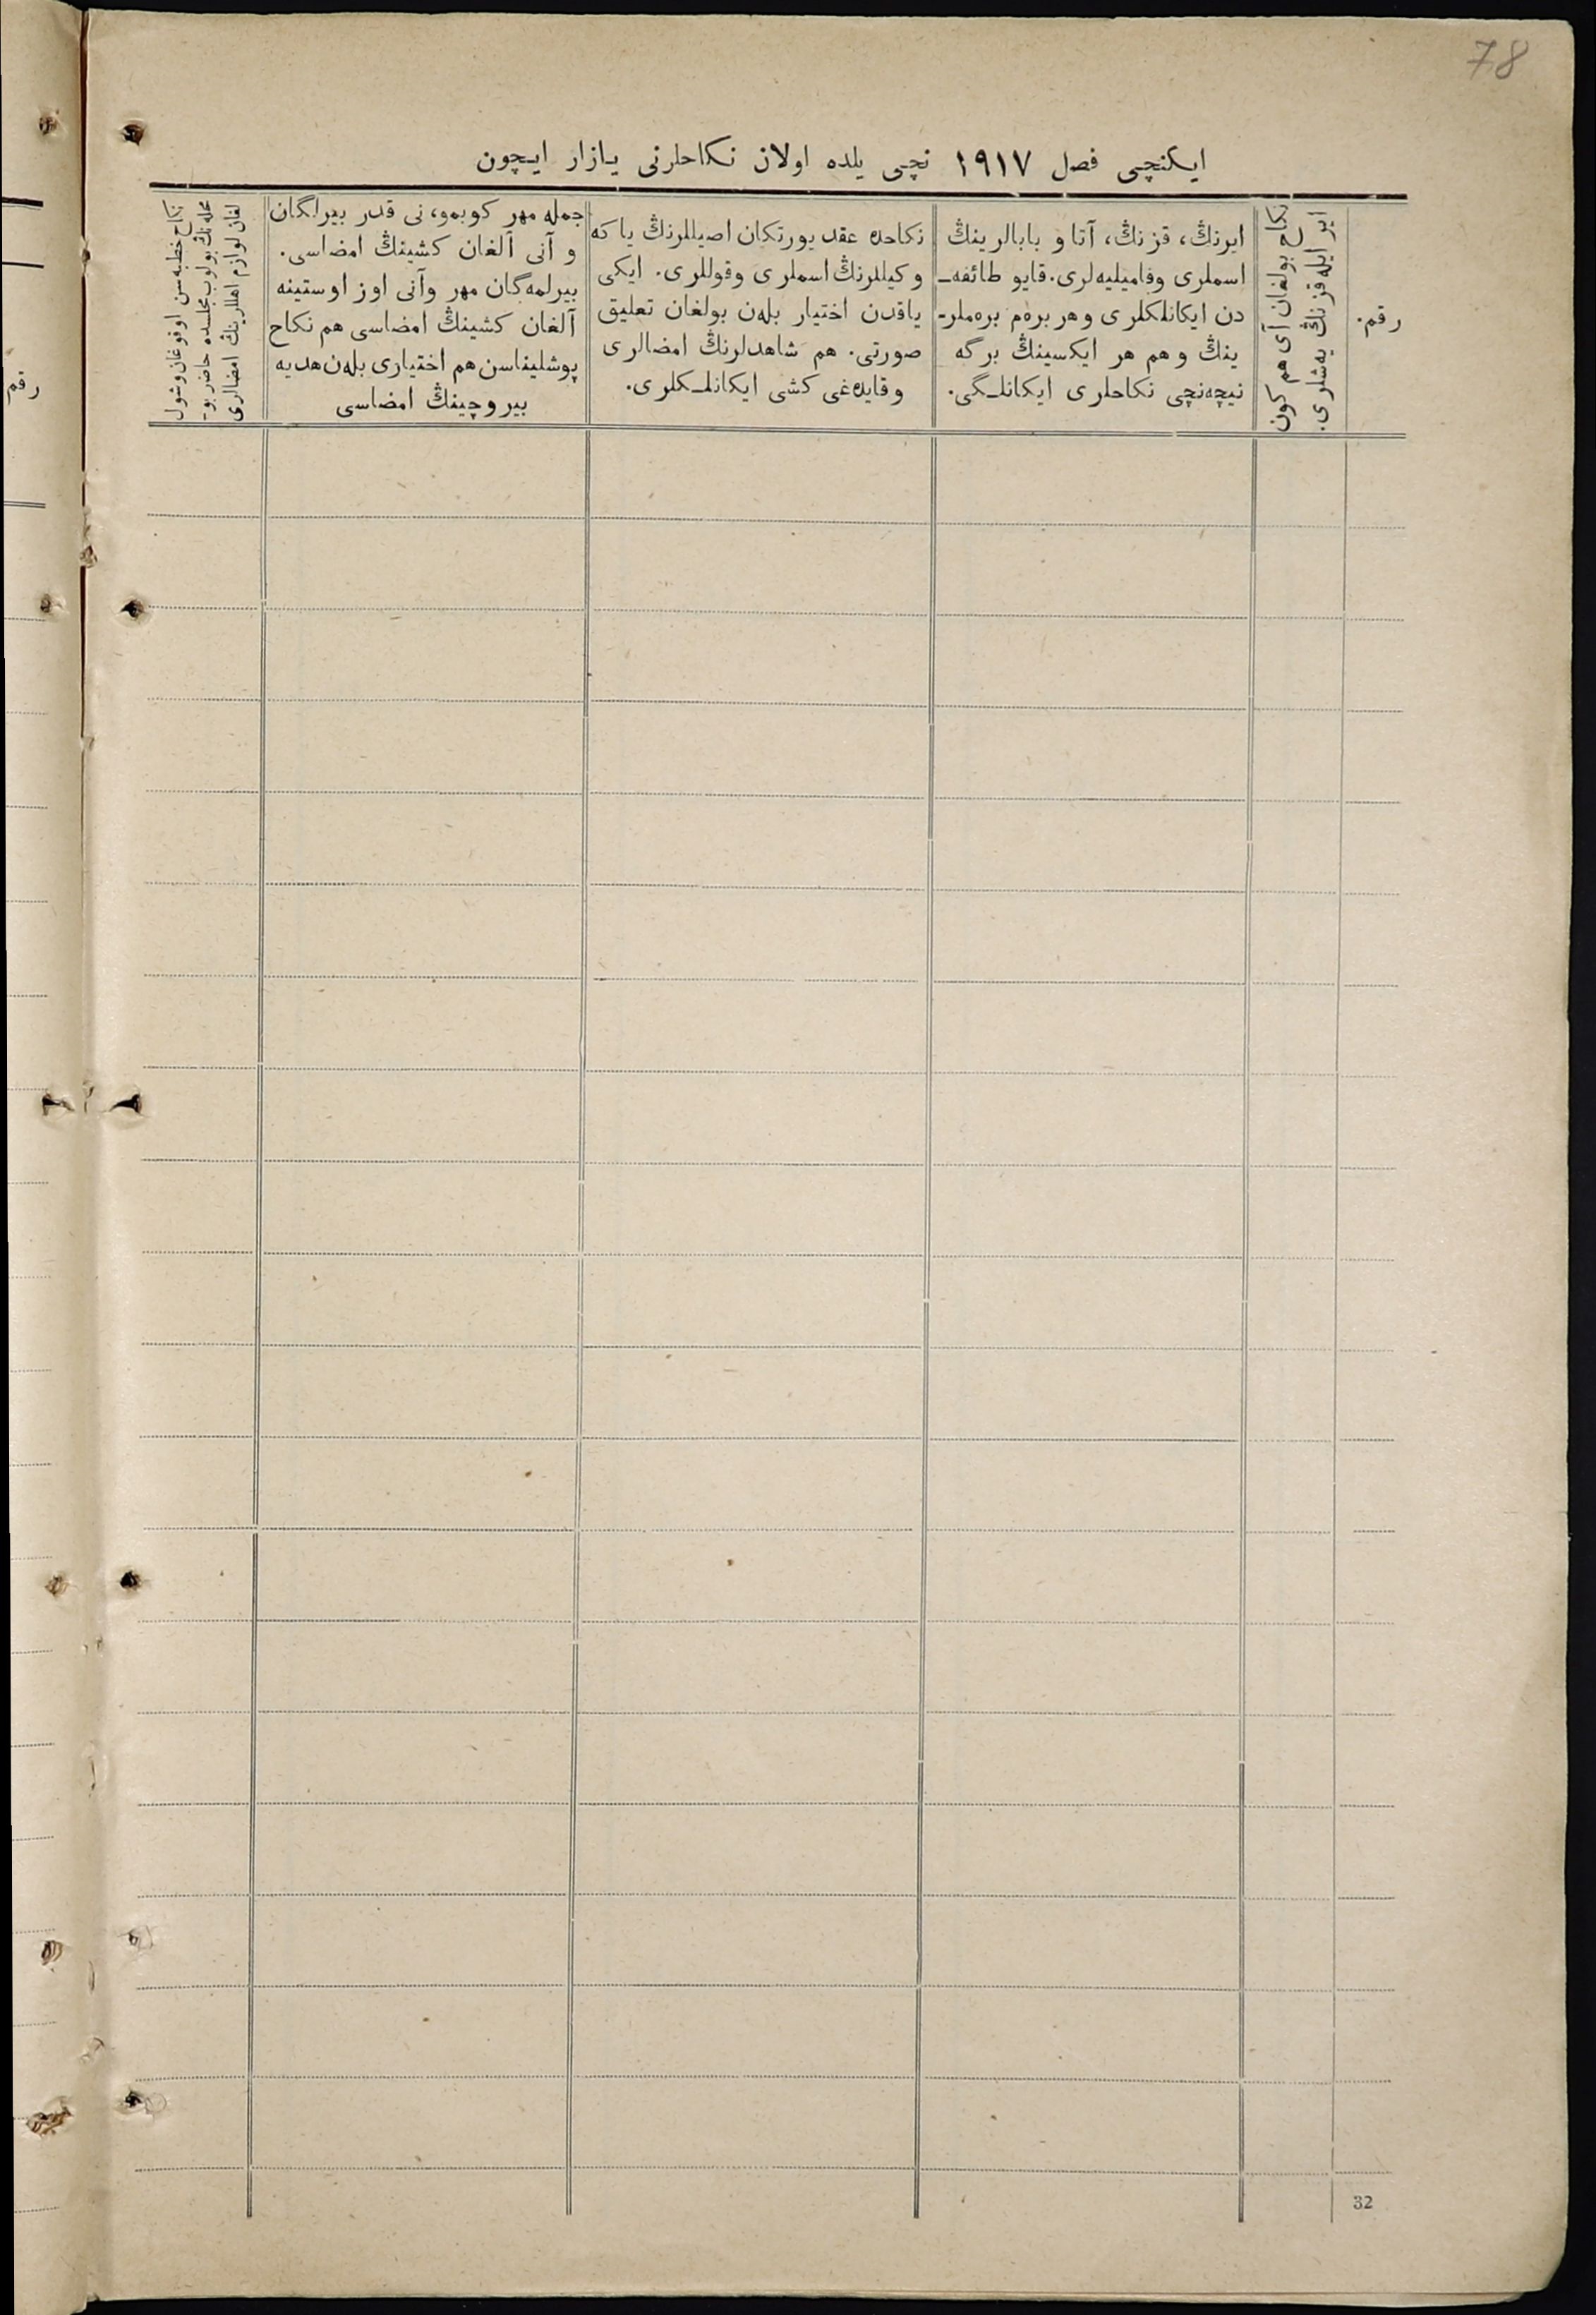 78
ایکنچی فصل ١٩١٧ نچی یلده اولان نکاحلرنی یازار ایچون
رقم.
نکاح بولغان آی هم کون
ایر ایله قزنڭ یەشلری.
ایرنڭ، قزنڭ، آتا و بابالرینڭ
اسملری وفامیلیەلری. قایو طائفەـ
دن ایکانلکلری وهر برەم برەملرـ
ینڭ وهم هر ایکسینڭ برگه
نیچەنچی نکاحلری ایکانلـگی.
نکاحده عقد یورتکان اصیللرنڭ یاکه
وکیللرنڭ اسملری وقوللری. ایکی
یاقدن اختیار بلەن بولغان تعلیق
صورتی. هم شاهدلرنڭ امضالری
وقایدەغی کشی ایکانلـکلری.
جمله مهر کوبمو، نی قدر بیرلگان
و آنی آلغان کشینڭ امضاسی.
بیرلمەگان مهر وآنی اوز اوستینه
آلغان کشینڭ امضاسی هم نکاح
پوشلیناسن هم اختیاری بلەن هدیه
بیروچینڭ امضاسی
نکاح خطبەسن اوقوغان وشول
محلەنڭ بولوب مجلسده حاضر بوـ
لغان لوازم اهللرینڭ امضالری
رقم
32